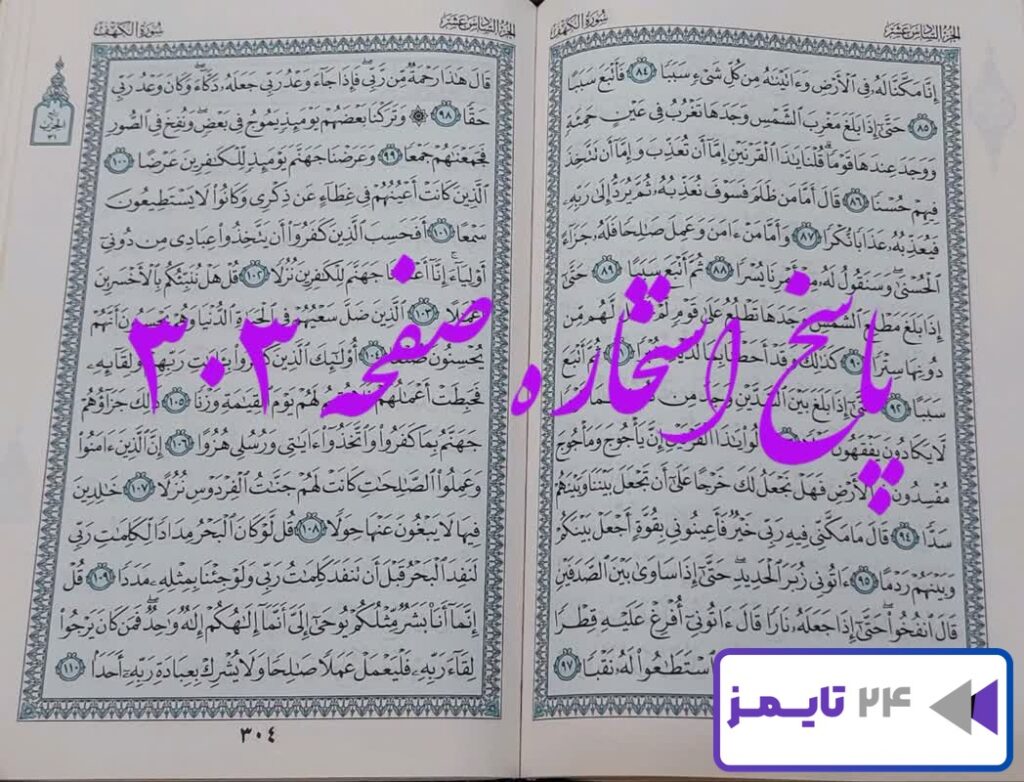 الجزء السادس عشر
سورة الكهف
إِنَّا مَكَّنَّا لَهُۥ فِى ٱلْأَرْضِ وَءَاتَيْنَٰهُ مِن كُلِّ شَىْءٍ سَبَبًا ٨٤ فَأَتْبَعَ سَبَبًا
٨٥ حَتَّىٰٓ إِذَا بَلَغَ مَغْرِبَ ٱلشَّمْسِ وَجَدَهَا تَغْرُبُ فِى عَيْنٍ حَمِئَةٍ
وَوَجَدَ عِندَهَا قَوْمًا ۗ قُلْنَا يَٰذَا ٱلْقَرْنَيْنِ إِمَّآ أَن تُعَذِّبَ وَإِمَّآ أَن تَتَّخِذَ
فِيهِمْ حُسْنًا ٨٦ قَالَ أَمَّا مَن ظَلَمَ فَسَوْفَ نُعَذِّبُهُۥ ثُمَّ يُرَدُّ إِلَىٰ رَبِّهِۦ
فَيُعَذِّبُهُۥ عَذَابًا نُّكْرًا ٨٧ وَأَمَّا مَنْ ءَامَنَ وَعَمِلَ صَٰلِحًا فَلَهُۥ جَزَآءً
ٱلْحُسْنَىٰ ۖ وَسَنَقُولُ لَهُۥ مِنْ أَمْرِنَا يُسْرًا ٨٨ ثُمَّ أَتْبَعَ سَبَبًا ٨٩ حَتَّىٰٓ
إِذَا بَلَغَ مَطْلِعَ ٱلشَّمْسِ وَجَدَهَا تَطْلُعُ عَلَىٰ قَوْمٍ لَّهُم مِّن
دُونِهَا سِتْرًا كَذَٰلِكَ وَقَدْ أَحَطْنَا بِمَا أَتْبَعَ
سَبَبًا ٩٢ حَتَّىٰٓ إِذَا بَلَغَ بَيْنَ ٱلسَّدَّيْنِ وَجَدَ مِن
لَّا يَكَادُونَ يَفْقَهُونَ قَالُوا۟ يَٰذَا ٱلْقَرْنَيْنِ إِنَّ يَأْجُوجَ وَمَأْجُوجَ
مُفْسِدُونَ فِى ٱلْأَرْضِ فَهَلْ نَجْعَلُ لَكَ خَرْجًا عَلَىٰٓ أَن تَجْعَلَ بَيْنَنَا وَبَيْنَهُمْ
سَدًّا ٩٤ قَالَ مَا مَكَّنِّى فِيهِ رَبِّى خَيْرٌ فَأَعِينُونِى بِقُوَّةٍ أَجْعَلْ بَيْنَكُمْ
وَبَيْنَهُمْ رَدْمًا ٩٥ ءَاتُونِى زُبَرَ ٱلْحَدِيدِ ۖ حَتَّىٰٓ إِذَا سَاوَىٰ بَيْنَ ٱلصَّدَفَيْنِ
قَالَ ٱنفُخُوا۟ ۖ حَتَّىٰٓ إِذَا جَعَلَهُۥ نَارًا قَالَ ءَاتُونِىٓ أُفْرِغْ عَلَيْهِ قِطْرًا
ٱسْتَطَٰعُوا۟ لَهُۥ نَقْبًا ٩٧
الجزء السادس عشر
سورة الكهف
قَالَ هَٰذَا رَحْمَةٌ مِّن رَّبِّى ۖ فَإِذَا جَآءَ وَعْدُ رَبِّى جَعَلَهُۥ دَكَّآءَ ۖ وَكَانَ وَعْدُ رَبِّى
حَقًّا ٩٨ ۞ وَتَرَكْنَا بَعْضَهُمْ يَوْمَئِذٍ يَمُوجُ فِى بَعْضٍ ۖ وَنُفِخَ فِى ٱلصُّورِ
فَجَمَعْنَٰهُمْ جَمْعًا ٩٩ وَعَرَضْنَا جَهَنَّمَ يَوْمَئِذٍ لِّلْكَٰفِرِينَ عَرْضًا ١٠٠
ٱلَّذِينَ كَانَتْ أَعْيُنُهُمْ فِى غِطَآءٍ عَن ذِكْرِى وَكَانُوا۟ لَا يَسْتَطِيعُونَ
سَمْعًا ١٠١ أَفَحَسِبَ ٱلَّذِينَ كَفَرُوٓا۟ أَن يَتَّخِذُوا۟ عِبَادِى مِن دُونِىٓ
أَوْلِيَآءَ ۚ إِنَّآ أَعْتَدْنَا جَهَنَّمَ لِلْكَٰفِرِينَ نُزُلًا ١٠٢ قُلْ هَلْ نُنَبِّئُكُم بِٱلْأَخْسَرِينَ
أَعْمَٰلًا ١٠٣ ٱلَّذِينَ ضَلَّ سَعْيُهُمْ فِى ٱلْحَيَوٰةِ ٱلدُّنْيَا وَهُمْ يَحْسَبُونَ أَنَّهُمْ
يُحْسِنُونَ صُنْعًا ١٠٤ أُو۟لَٰٓئِكَ ٱلَّذِينَ كَفَرُوا۟ بِـَٔايَٰتِ رَبِّهِمْ وَلِقَآئِهِۦ
فَحَبِطَتْ أَعْمَٰلُهُمْ لَهُمْ يَوْمَ ٱلْقِيَٰمَةِ وَزْنًا ١٠٥ ذَٰلِكَ جَزَآؤُهُمْ
جَهَنَّمُ بِمَا كَفَرُوا۟ وَٱتَّخَذُوٓا۟ ءَايَٰتِى وَرُسُلِى هُزُوًا ١٠٦ إِنَّ ٱلَّذِينَ ءَامَنُوا۟
وَعَمِلُوا۟ ٱلصَّٰلِحَٰتِ كَانَتْ لَهُمْ جَنَّٰتُ ٱلْفِرْدَوْسِ نُزُلًا ١٠٧ خَٰلِدِينَ
فِيهَا لَا يَبْغُونَ عَنْهَا حِوَلًا ١٠٨ قُل لَّوْ كَانَ ٱلْبَحْرُ مِدَادًا لِّكَلِمَٰتِ رَبِّى
لَنَفِدَ ٱلْبَحْرُ قَبْلَ أَن تَنفَدَ كَلِمَٰتُ رَبِّى وَلَوْ جِئْنَا بِمِثْلِهِۦ مَدَدًا ١٠٩ قُلْ
إِنَّمَآ أَنَا۠ بَشَرٌ مِّثْلُكُمْ يُوحَىٰٓ إِلَىَّ أَنَّمَآ إِلَٰهُكُمْ إِلَٰهٌ وَٰحِدٌ ۖ فَمَن كَانَ يَرْجُوا۟
لِقَآءَ رَبِّهِۦ فَلْيَعْمَلْ عَمَلًا صَٰلِحًا وَلَا يُشْرِكْ بِعِبَادَةِ رَبِّهِۦٓ أَحَدًۢا ١١٠
٣٠٤
پاسخ استخاره صفحه ۳۰۳
۲۴ تایمز